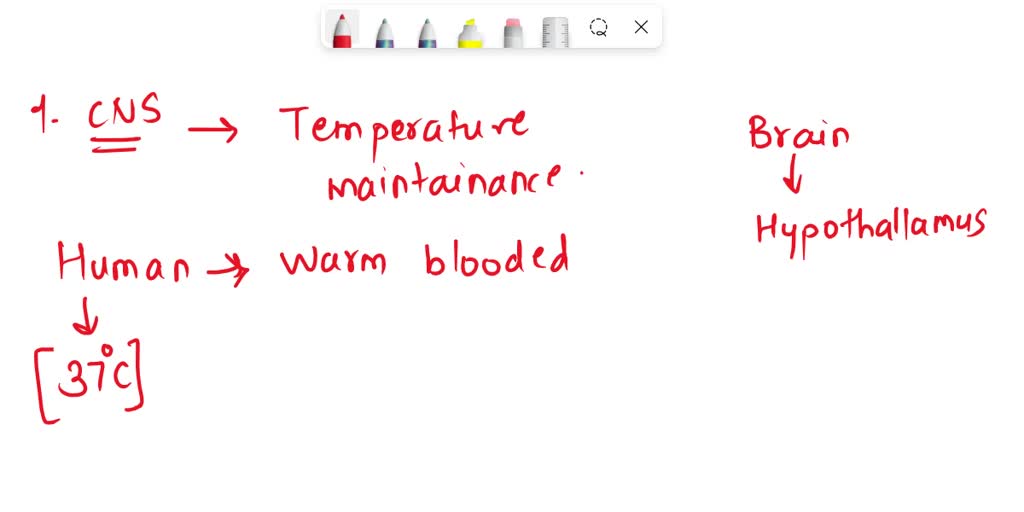 1. CNS → Temperature
maintainance.
Brain
↓
Hypothallamus
Human → Warm blooded
↓
[37°C]